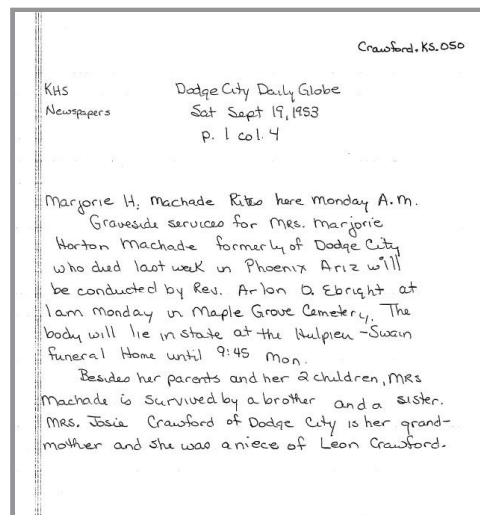 Crawford.KS.050
KHS
Newspapers
Dodge City Daily Globe
Sat Sept 19, 1953
p. 1 col. 4
Marjorie H. Machade Rites here Monday A.M.
Graveside services for Mrs. Marjorie
Horton Machade formerly of Dodge City
who died last week in Phoenix Ariz will
be conducted by Rev. Arlon D. Ebright at
1am Monday in Maple Grove Cemetery. The
body will lie in state at the Hulpieu-Swain
Funeral Home until 9:45 Mon.
Besides her parents and her 2 children, Mrs
Machade is survived by a brother and a sister.
Mrs. Josie Crawford of Dodge City is her grand-
mother and she was a niece of Leon Crawford.